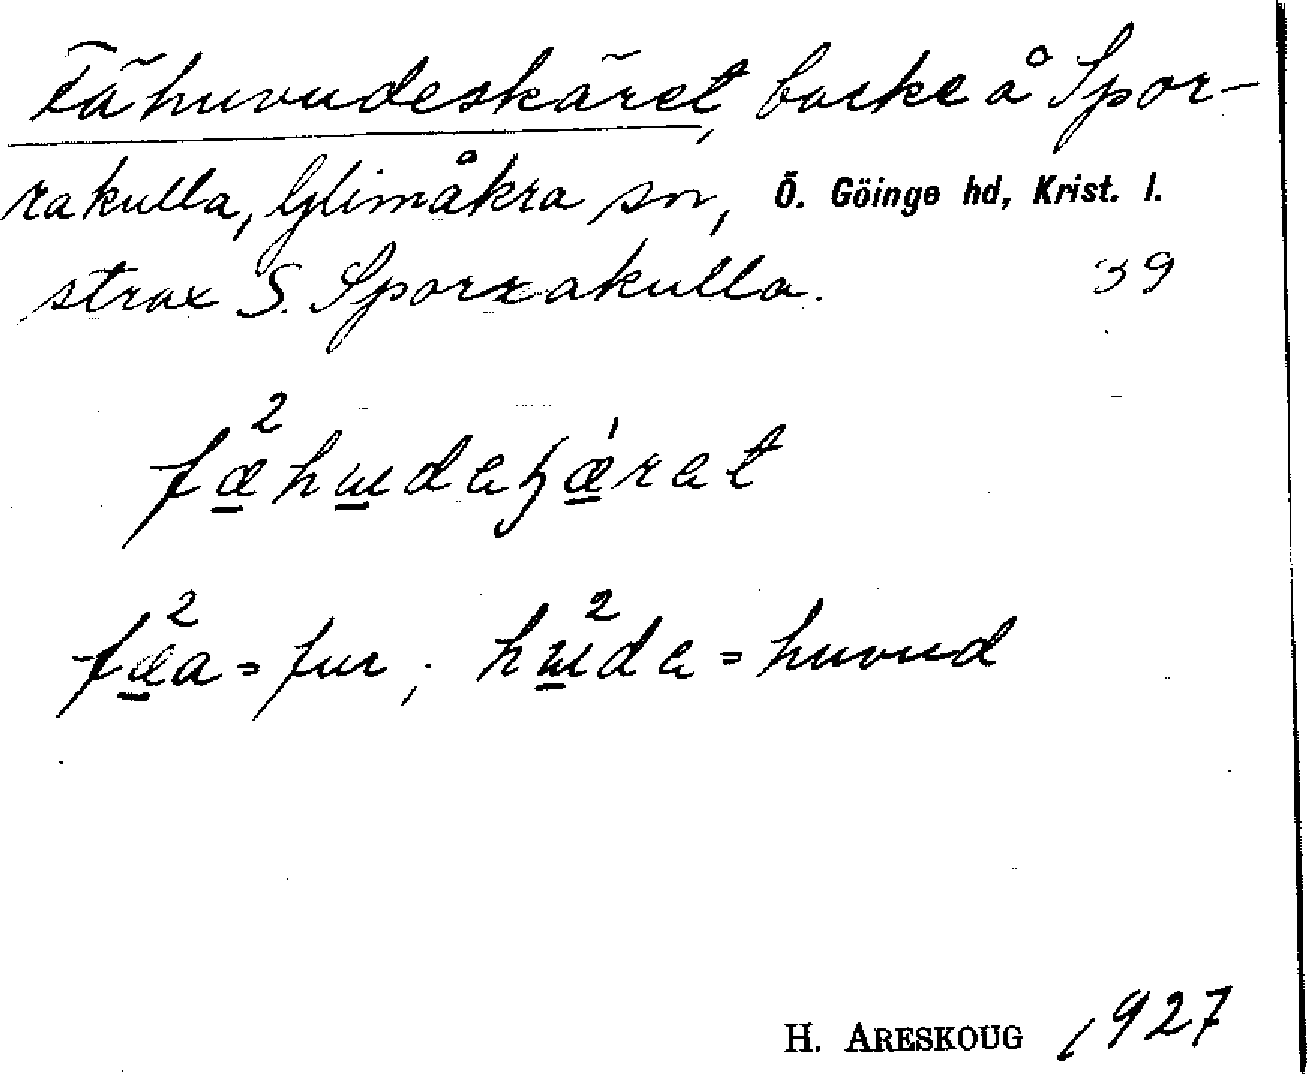 Fähuvudeskäret, backe å Spor-
rakulla, Glimåkra sn, Ö. Göinge hd, Krist. l.
strax S. Sporrakulla. 39
fæ²hɯdaʒǽrat
fæ²a = fur; hɯ²da = huvud
H. ARESKOUG 1927